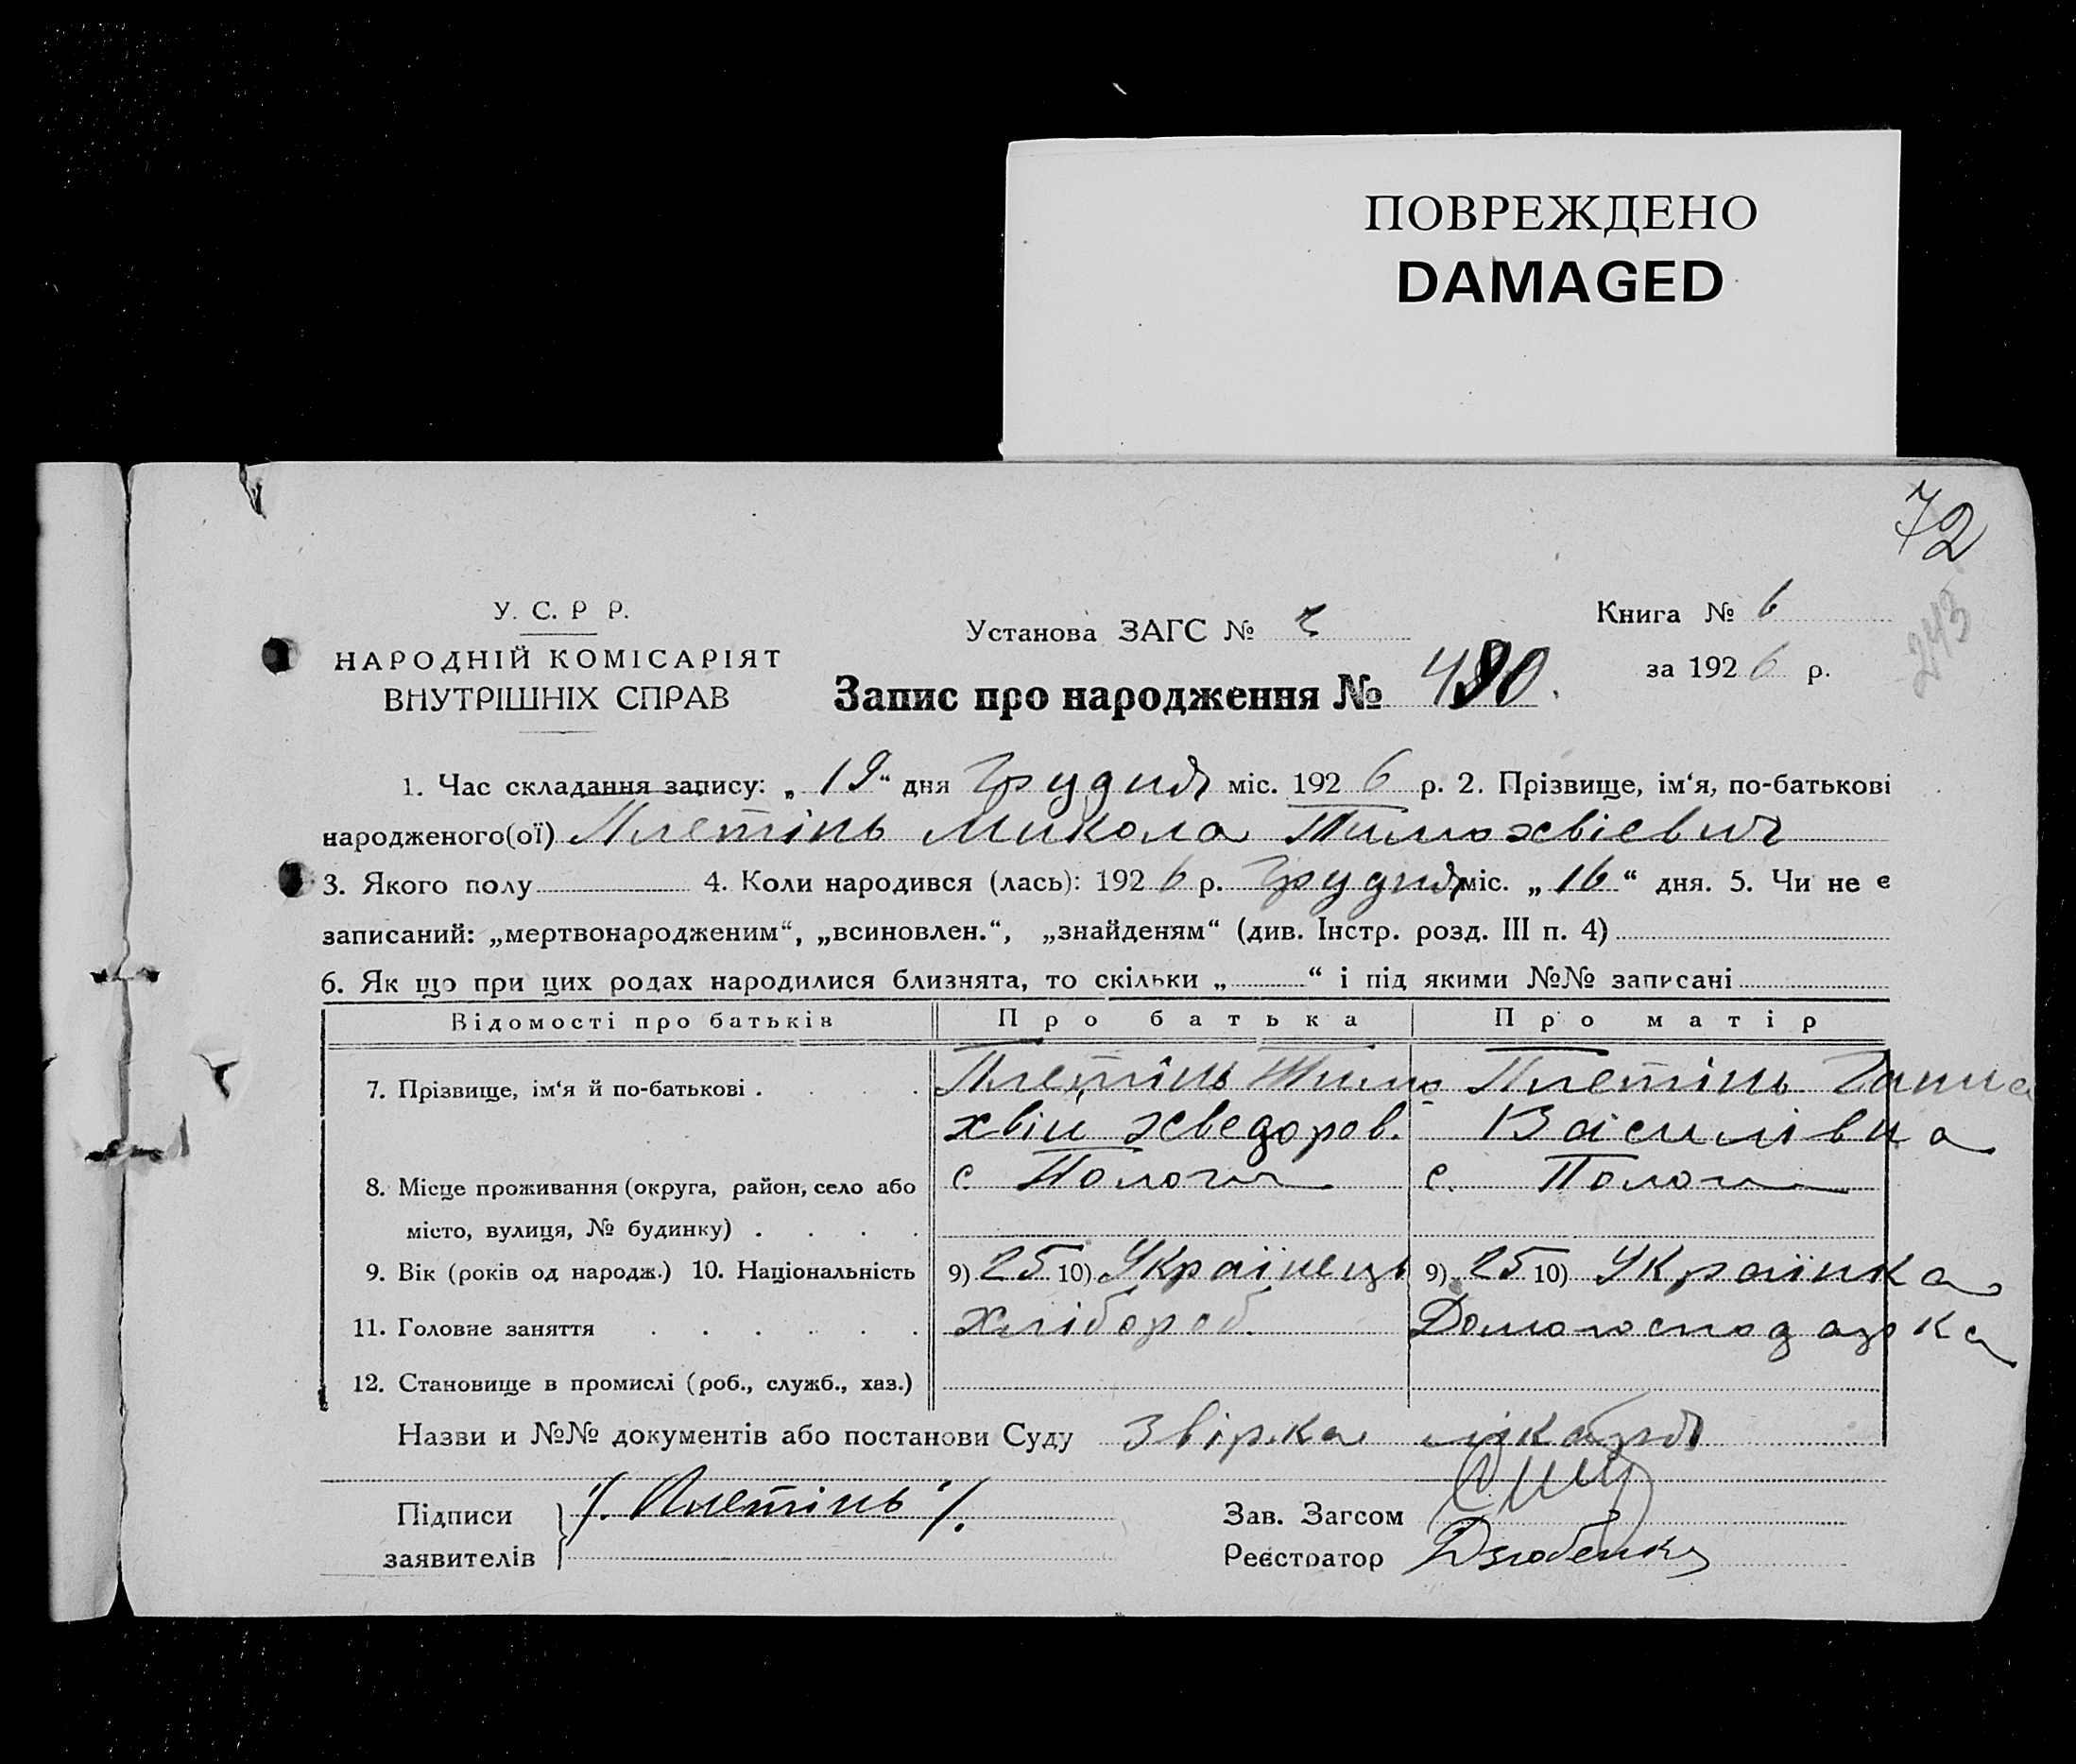 ПОВРЕЖДЕНО
DAMAGED
72
243
У. С. Р Р.
НАРОДНІЙ КОМІСАРІЯТ
ВНУТРІШНІХ СПРАВ
Установа ЗАГС №
Книга № 6
за 1926 р.
Запис про народження № 480.
1. Час складання запису: „19“ дня Грудня міс. 1926 р. 2. Прізвище, ім‘я, по-батькові
народженого(ої) Плетінь Микола Тимохвієвич
3. Якого полу 4. Коли народився (лась): 1926 р. Грудня міс. „16“ дня. 5. Чи не є
записаний: „мертвонародженим“, „всиновлен.“, „знайденям“ (див. Інстр. розд. III п. 4)
6. Як що при цих родах народилися близнята, то скільки „ “ і під якими №№ записані
Відомості про батьків Про батька Про матір
7. Прізвище, ім‘я й по-батькові . . . . Плетінь Тимо- Плетінь Ганна
хвій Хведоров. Васи­лівна
8. Місце проживання (округа, район, село або с. Пологи с. Пологи
місто, вулиця, № будинку) . . . .
9. Вік (років од народж.) 10. Національність 9) 25 10) Українець 9) 25 10) Українка
11. Головне заняття . . . . . . Хлібороб. Домогосподарка
12. Становище в промислі (роб., служб., хаз.)
Назви и №№ документів або постанови Суду Звірка лікаря
Підписи /. Плетінь /. Зав. Загсом
заявителів Реєстратор Дзюбенко